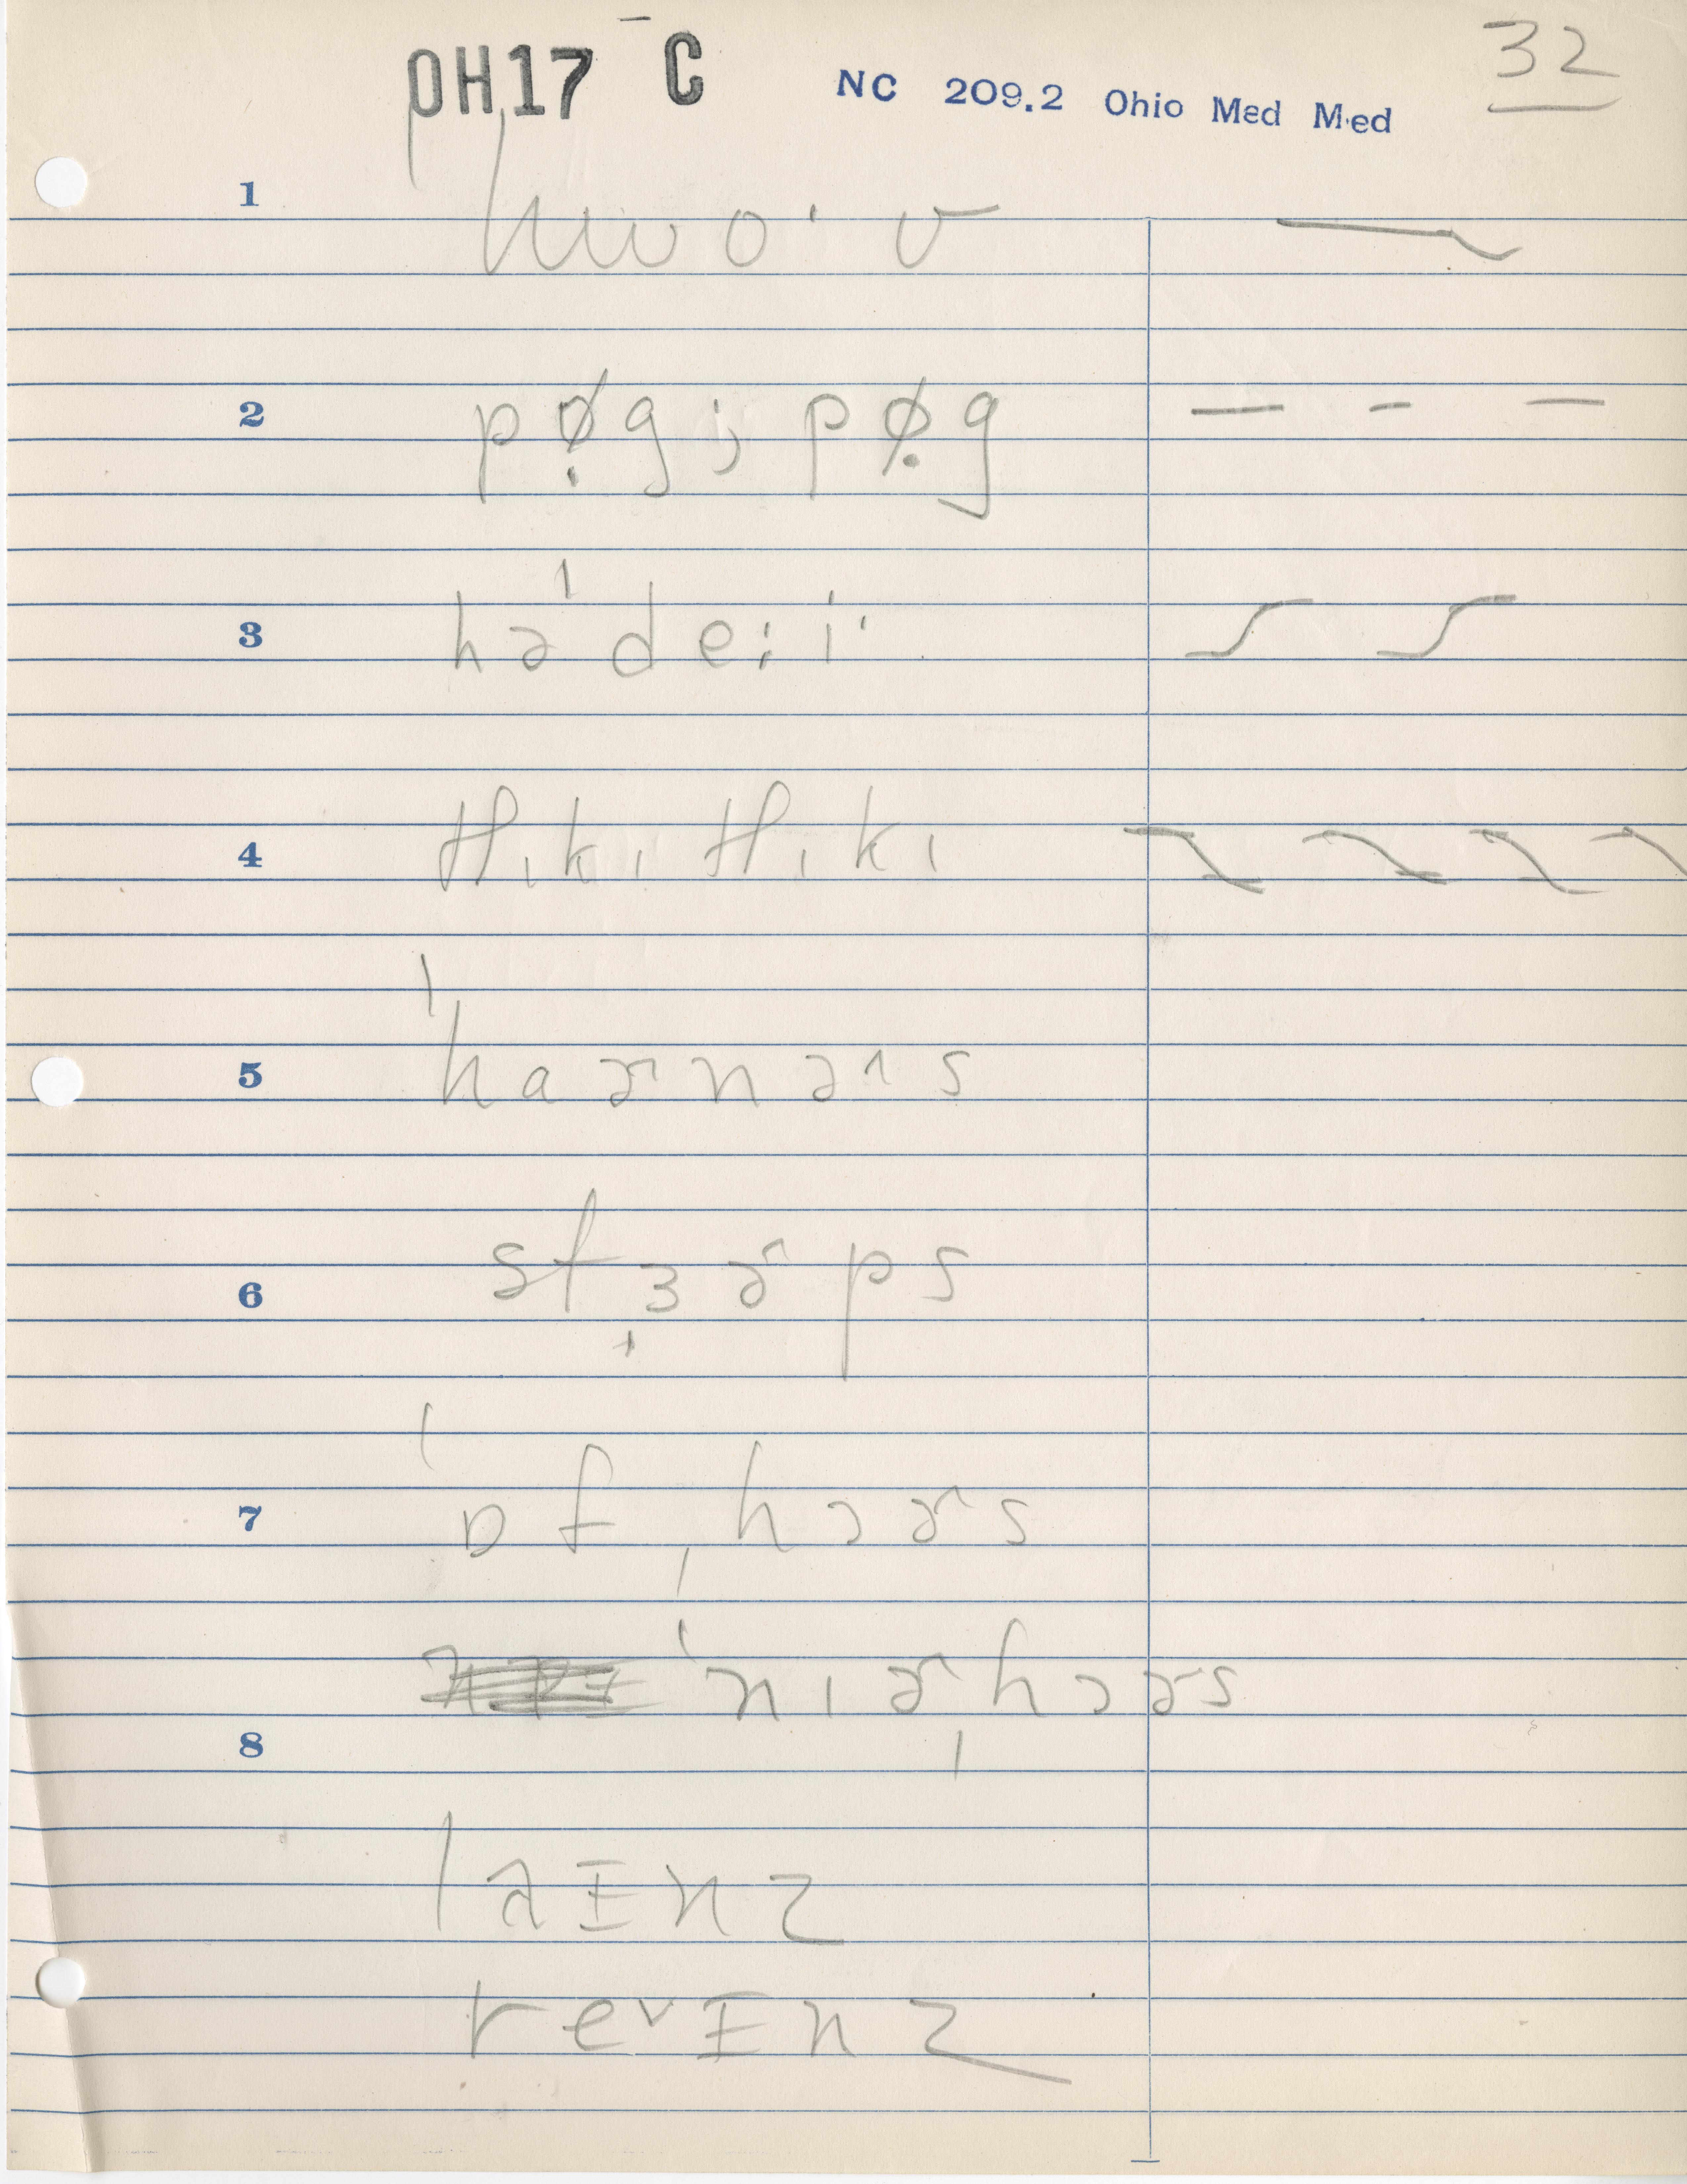 OH17 C NC 209.2 Ohio Med Med 32
1 hwoˈʊ
2 pø̣g ; pø̣g
3 həˈdeːiˑ
4 tʃɪkɪ tʃɪkɪ
5 ˈhaɚnəɪs
6 stɜɚps
7 ˈɒfˌhɔɚs
8 ˈnɪɚˌhɔɚs
laɪnz
revɪnz